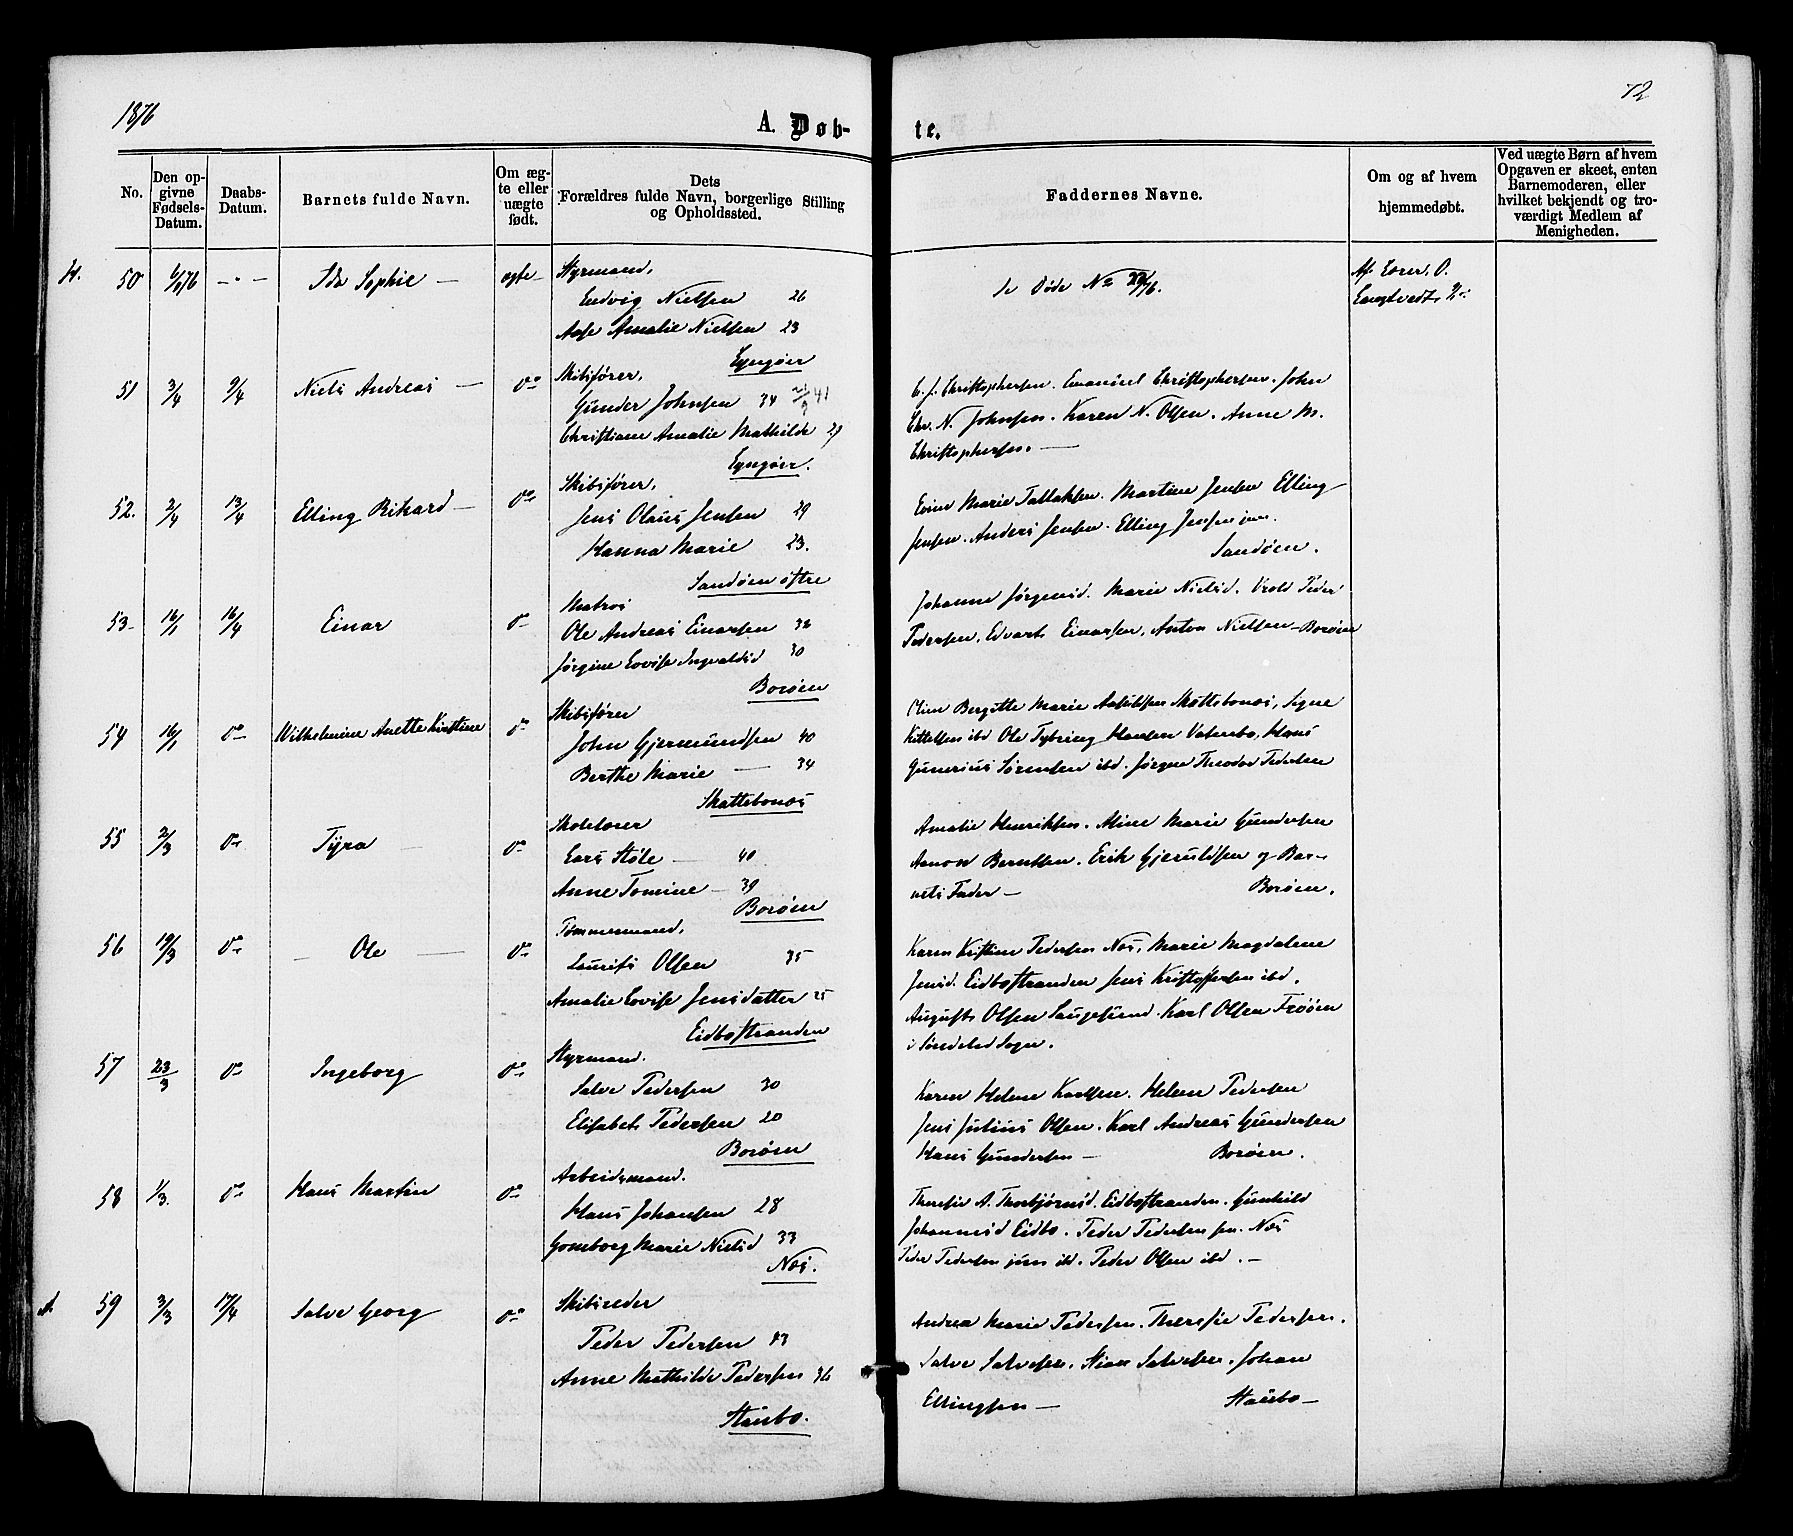 1876
72
A. Døb-
te.
No.
Den op-
givne
Fødsels-
Datum.
Daabs-
Datum.
Barnets fulde Navn.
Om æg-
te eller
uægte
født.
Dets
Forældres fulde Navn, borgerlige Stilling
og Opholdssted.
Faddernes Navne.
Om og af hvem
hjemmedøbt.
Ved uægte Børn af hvem
Opgaven er skeet, enten
Barnemoderen, eller
hvilket bekjendt og tro-
værdigt Medlem af
Menigheden.
H. 50 Ida Sophie — ægte
Styrmand,
Ludvig Nielsen 26
Aase Amalie Nielsen 23
Lyngøer
se Døde No 22/76.
Af Lærer O.
51 3/4 9/4 Niels Andreas — do
Skibsfører,
Gunder Johnsen 34
Christiane Amalie Mathilde 29
Lyngøer.
C. J. Christophersen. Emanuel Christophersen. John
Chr. N. Johnsen. Karen N. Olsen. Anne M.
Christophersen. —
52. 2/4 13/4 Elling Rikard — do
Skibsfører,
Jens Olaus Jensen 29
Hanna Marie 23.
Sandøen østre
Marie Tallaksen. Martine Jensen Elling
Jensen. Anders Jensen. Elling Jensen jun.
Sandøen.
53 16/1 16/4 Einar do
Matros
Ole Andreas Einarsen 32
Jørgine Lovise Ingvaldsd 30
Borøen
Johanne Jørgensd. Marie Nielsd. Vrold Peder
Pedersen. Edvart Einarsen, Anton Nielsen — Borøen
54 16/1 do Wilhelmine Anette Kristine do
Skibsfører
John Gjermundsen 40
Berthe Marie — 34
Skattebonæs
Oline Bergitte Marie Aslaksen Skattebonæs, Signe
Kittelsen ibd Ole Tybring Hansen Vatnebo, Hans
Gunerius Sørensen ibd. Jørgen Theodor Pedersen
55 2/3 do Tyra — do
Skolelærer
Lars Støle — 40
Anne Tomine — 39
Borøen
Amalie Henriksen. Aline Marie Gundersen
Aanon Berntsen. Erik Gjeruldsen og Bar-
nets Fader — Borøen.
56 19/3 do — Ole — do
Tømmermand,
Laurits Olsen 35
Amalie Lovise Jensdatter 25
Eidbostranden
Karen Kristine Pedersen Næs, Marie Magdalene
Jensd. Eidbostranden Jens Kristoffersen ibd.
August Olsen Laugesund. Karl Olsen Frøøen
i Søndeled Sogn.
57 23/3 do Ingeborg do
Styrmand.
Salve Pedersen 30
Elisabet Pedersen 20
Borøen
Karen Helene Karlsen. Helene Pedersen
Jens Julius Olsen. Karl Andreas Gundersen
Hans Gundersen — Borøen.
58 1/3. do Hans Martin do
Arbeidsmand.
Hans Johansen 28
Gomborg Marie Nielsd 33
Næs.
Theresie A. Thorbjørnsd. Eidbostranden. Gunhild
Johannesd Eidbo. Peder Pedersen sen. Næs
Peder Pedersen jun ibd. Peder Olsen ibd. —
A. 59 3/3 17/4 Salve Georg do
Skibsreder
Peder Pedersen 43
Anne Mathilde Pedersen 36
Staubo.
Andrea Marie Pedersen. Theresie Pedersen.
Salve Salvesen. Salvesen. Johan
Ellingsen — Staubo —